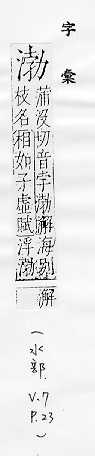 字彙
渤
蒲沒切音孛渤澥海別
枝名相如子虛賦浮渤
澥
(水部.
V.7
P.23
)